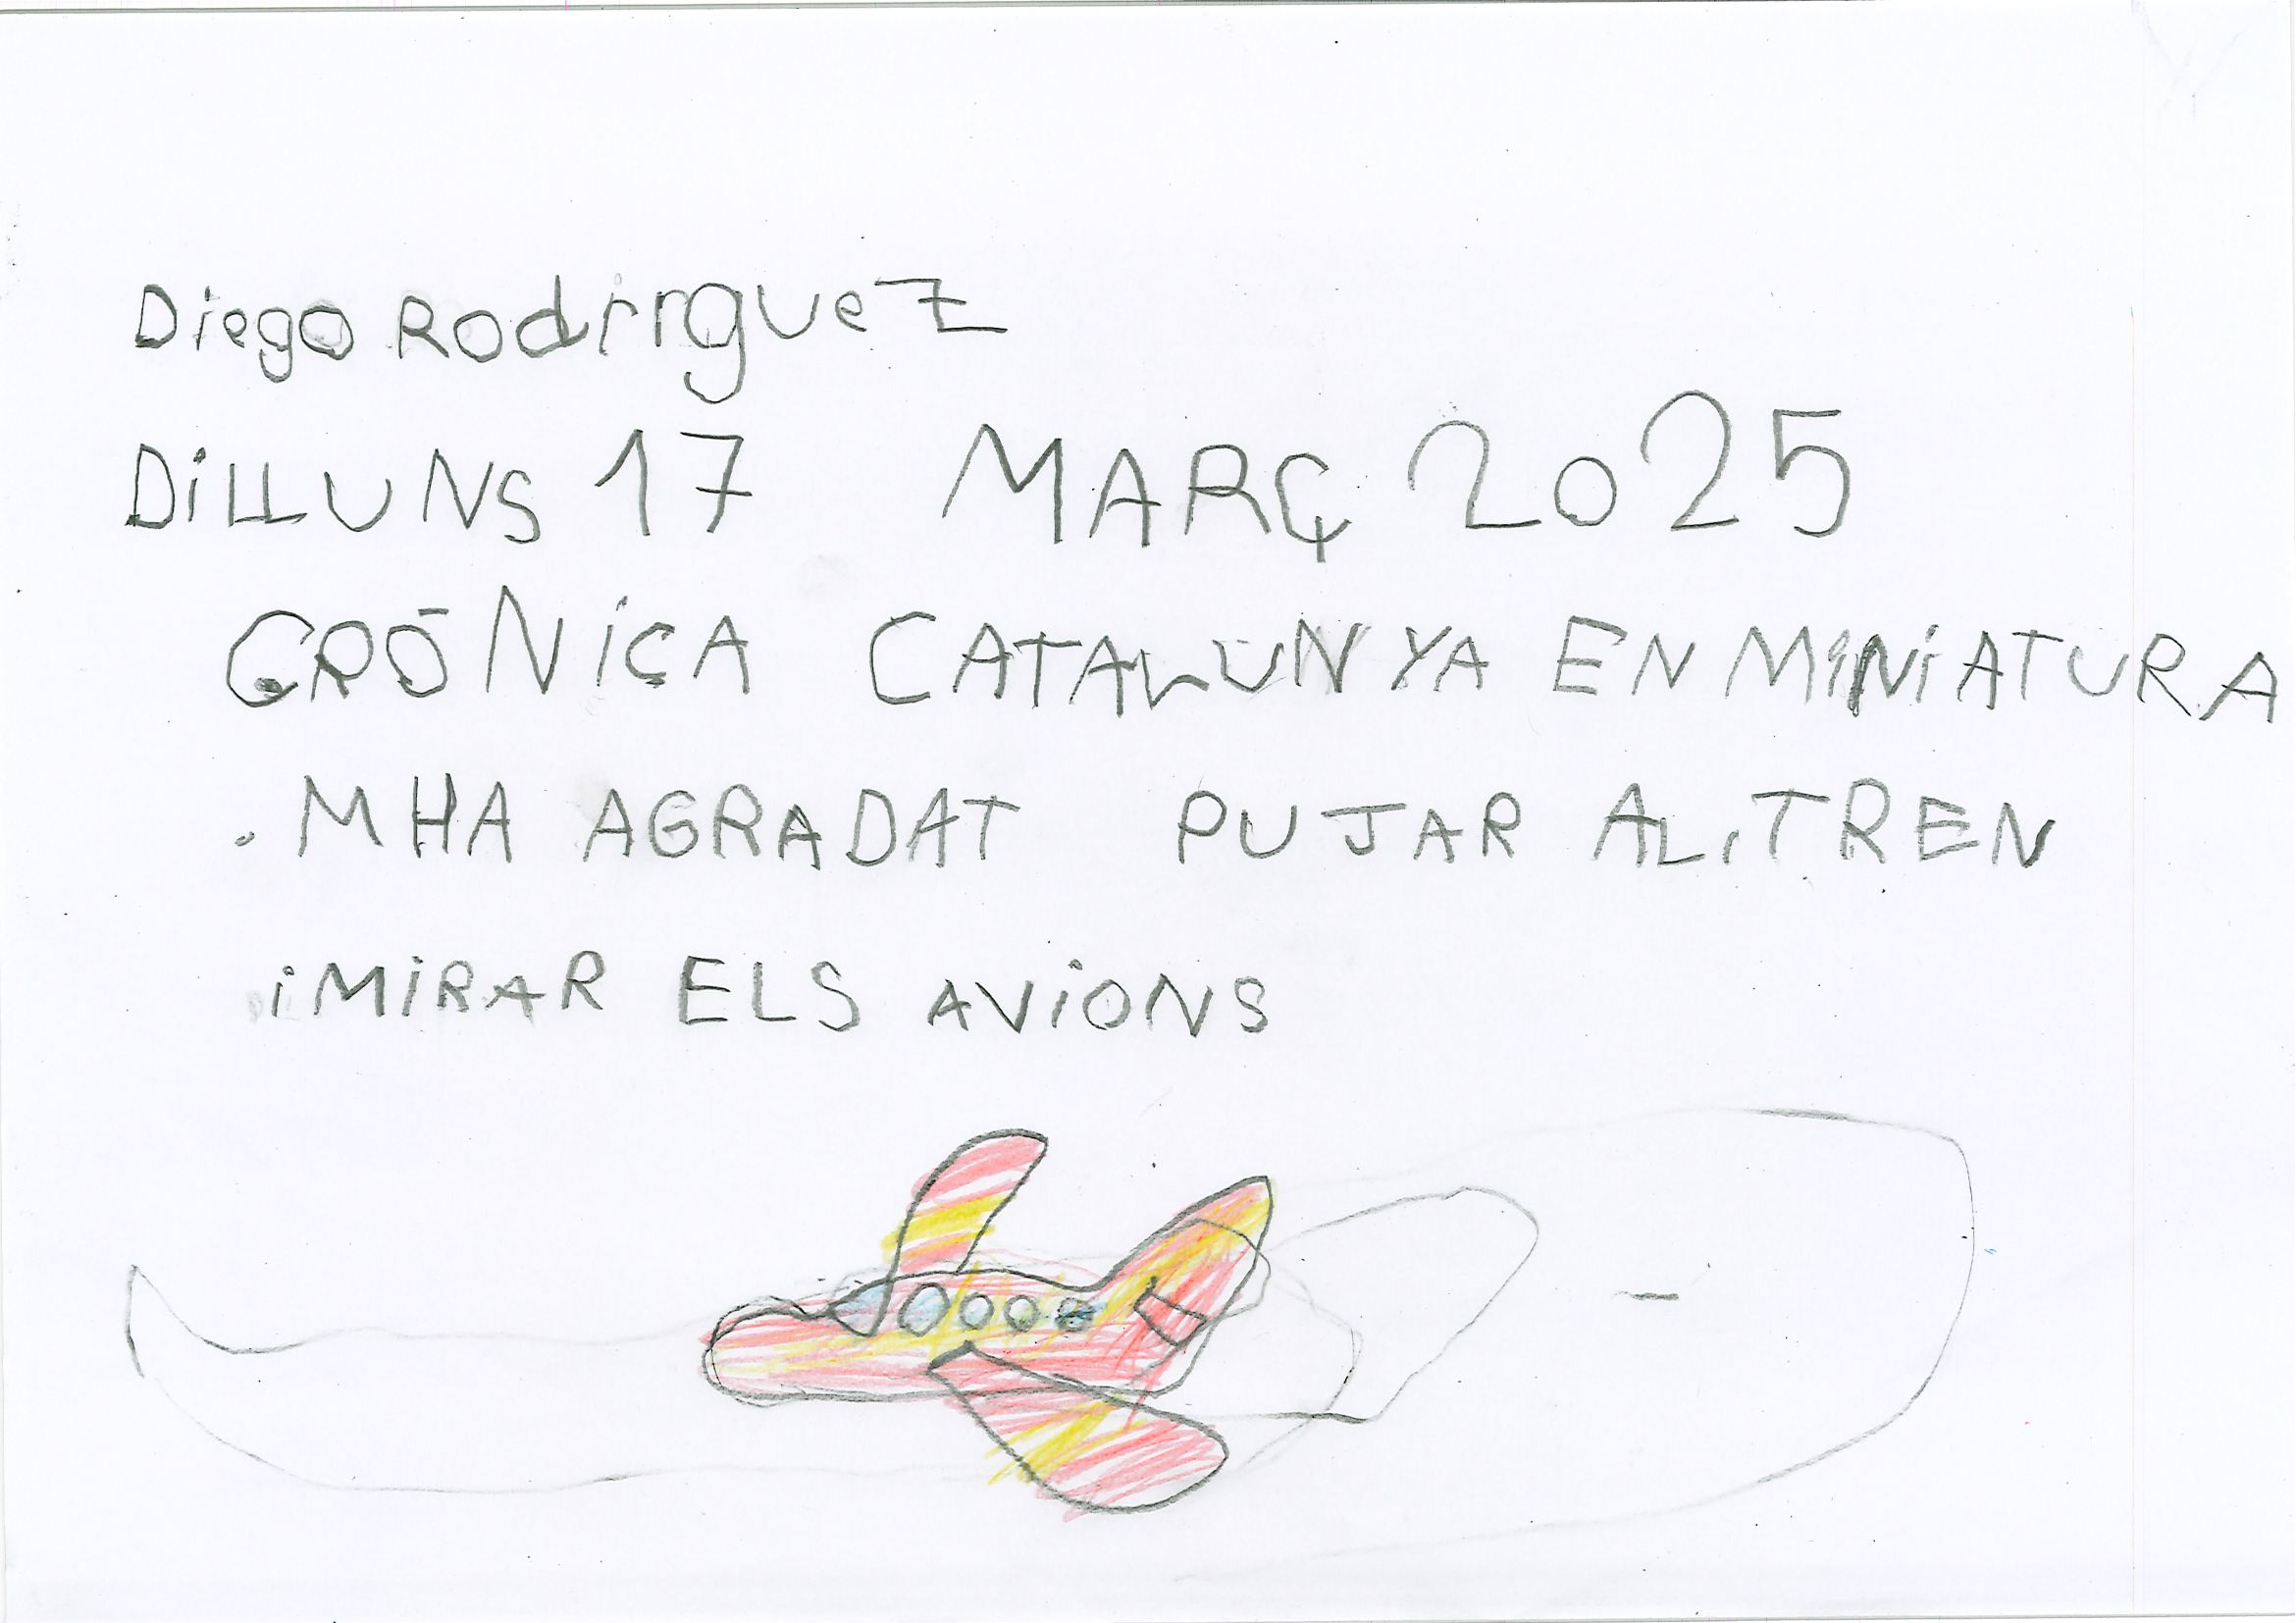 Diego Rodrirguez
DiLLUNS 17 MARÇ 2025
CRÒNiCA CATALUNYA EN MiNiATURA
. MHA AGRADAT PUJAR AL TREN
i MiRAR ELS AViONS